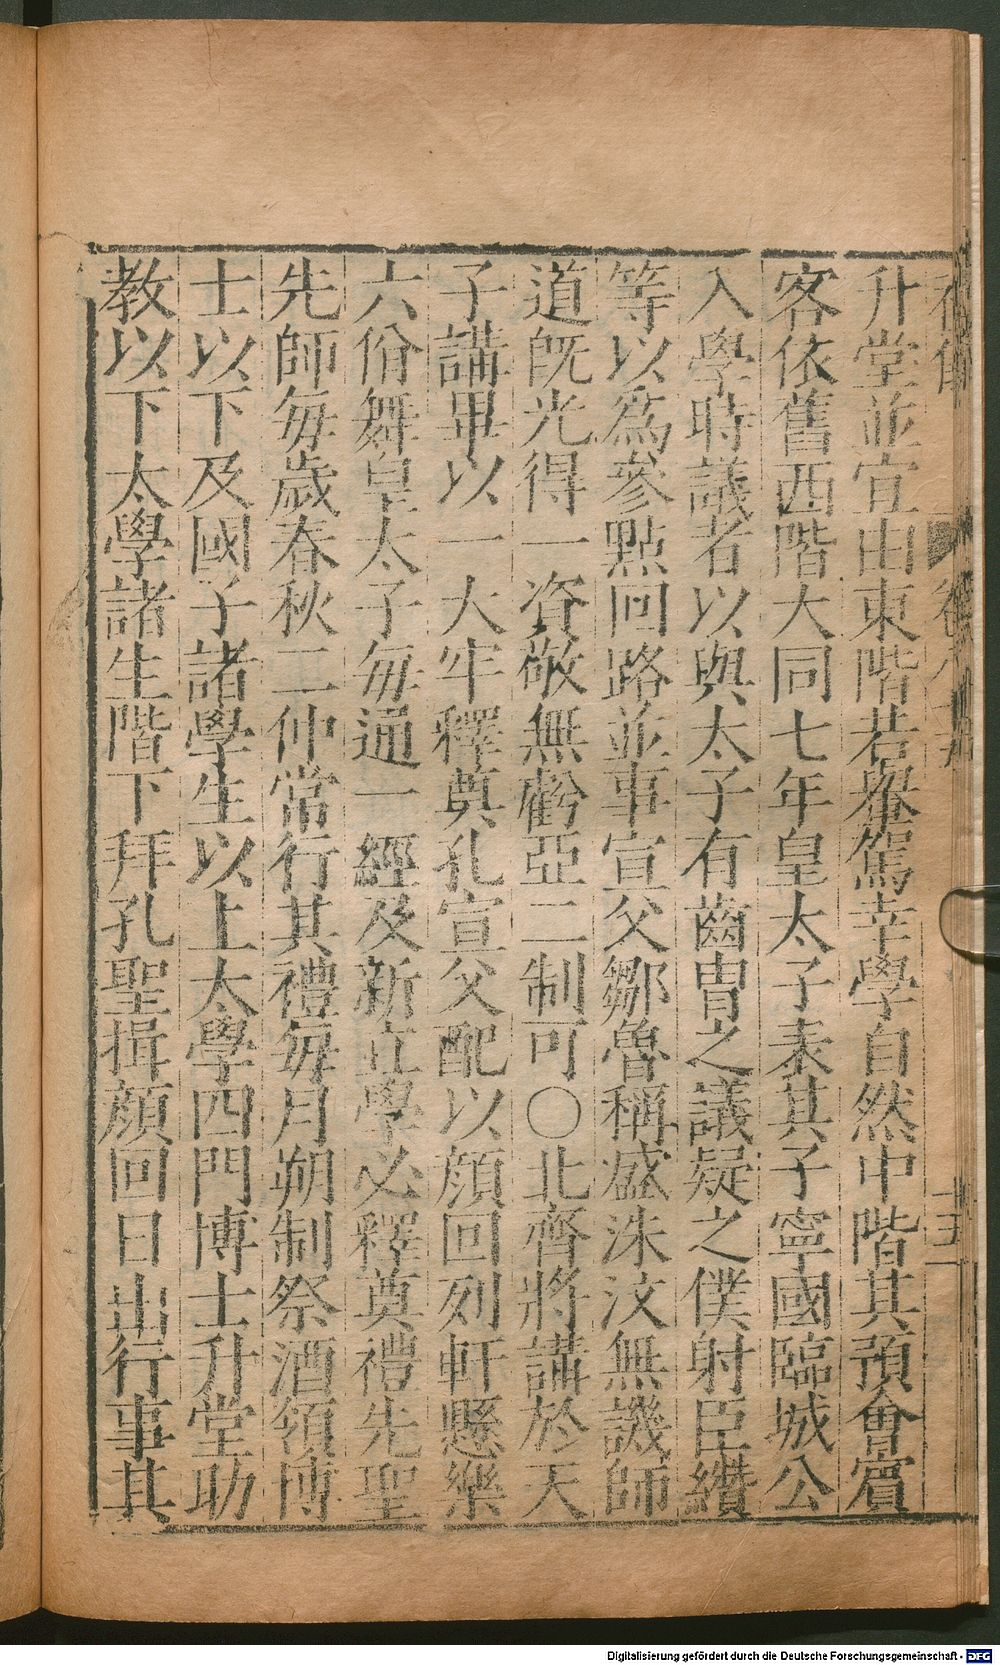 升堂並宜由東階若輿駕幸學自然中階其預會賓
客依舊西階大同七年皇太子表其子寧國臨城公
入學時議者以與太子有齒胄之議疑之僕射臣纘
等以爲參點回路並事宣父鄒魯稱盛洙汶無譏師
道旣光得一資敬無虧亞二制可○北齊將講於天
子講畢以一大牢釋奠孔宣父配以顔回列軒懸樂
六佾舞皇太子每通一經及新立學必釋奠禮先聖
先師每歲春秋二仲常行其禮每月朔制祭酒領博
士以下及國子諸學生以上太學四門博士升堂助
教以下太學諸生階下拜孔聖揖顔回日出行事其
Digitalisierung gefördert durch die Deutsche Forschungsgemeinschaft - DFG